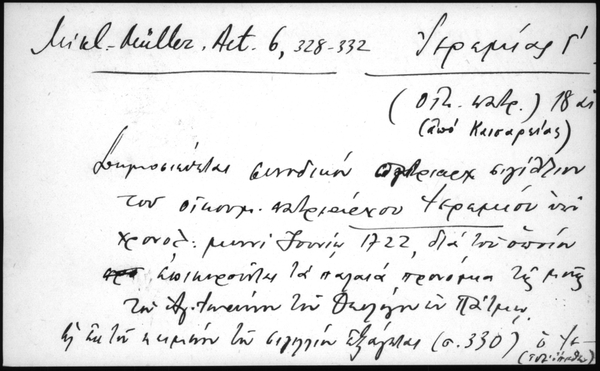 Mikl-Müller. Act. 6, 328-332 Ἱερεμίας Γ΄
(Οἰκ. πατρ.) 18 αἰ
(ἀπό Καισαρείας)
Δημοσιεύεται συνοδικόν πατριαρχ σιγίλλιον
τοῦ οἰκουμ. πατριάρχου Ἱερεμίου ὑπό
χρονολ: μηνί Ἰουνίῳ 1722, διά τοῦ ὁποίου
ἐπικυροῦνται τά παλαιά προνόμια τῆς μονῆς
τοῦ Ἁγ. Ἰωάννου τοῦ Θεολόγου ἐν Πάτμῳ.
Ἐκ τοῦ κειμένου τοῦ σιγιλλίου ἐξάγεται (σ. 330) ὁ Ἱε-